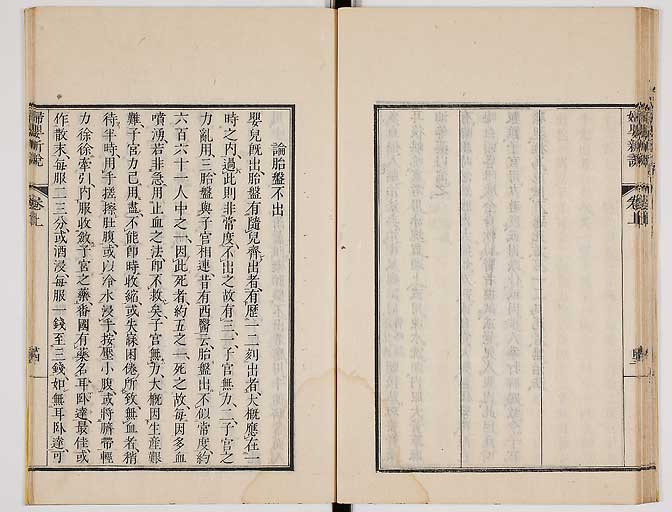 婦嬰新說
卷上
論胎盤不出
嬰兒既出、胎盤有隨兒齊出者、有歷一二刻出者、大概應在一
時之內、過此則非常度、不出之故有三、一子宮無力、二子宮之
力亂用、三胎盤與子宮相連、昔有西醫云、胎盤出不似常度、約
六百六十一人中之一、因此死者、約五之一、死之故、每因多血
噴湧、若非急用止血之法、即不救矣、子宮無力、大概因生產艱
難、子宮力已用盡、不能即時收縮、或失寐困倦所致、無血者、稍
待半時、用手搓擦肚腹、或以冷水浸手、按壓小腹、或將臍帶輕
力徐徐牽引、內服收斂子宮之藥、番國有藥名耳卧達、最佳、或
作散末、每服二三分、或酒浸、每服一錢至三錢、如無耳卧達、可
婦嬰新說
卷上